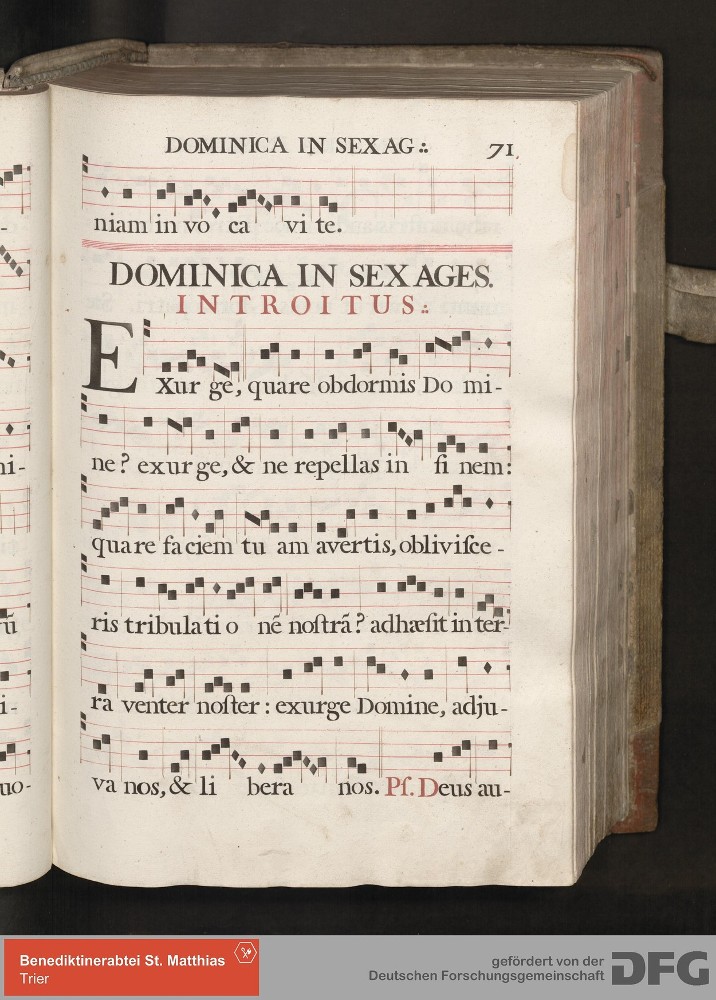 DOMINICA IN SEXAG:. 71.
niam in vo ca vi te.
DOMINICA IN SEXAGES.
INTROITUS:.
EXur ge, quare obdormis Do mi-
ne? exur ge, & ne repellas in fi nem:
quare faciem tu am avertis, oblivisce-
ris tribulati o nẽ nostrã? adhæsit in ter-
ra venter noster: exurge Domine, adju-
va nos, & li bera nos. Ps. Deus au-
-
ni-
ũ
i-
uo-
Benediktinerabtei St. Matthias
Trier
gefördert von der
Deutschen Forschungsgemeinschaft
DFG